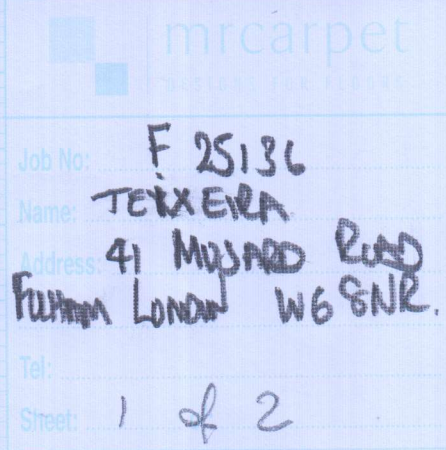 mrcarpet
DESIGNS FOR FLOORS
Job No: F 25136
Name: TEIXEIRA
Address: 41 MUSARD ROAD
FULHAM LONDON W6 8NR.
Tel:
Sheet: 1 of 2